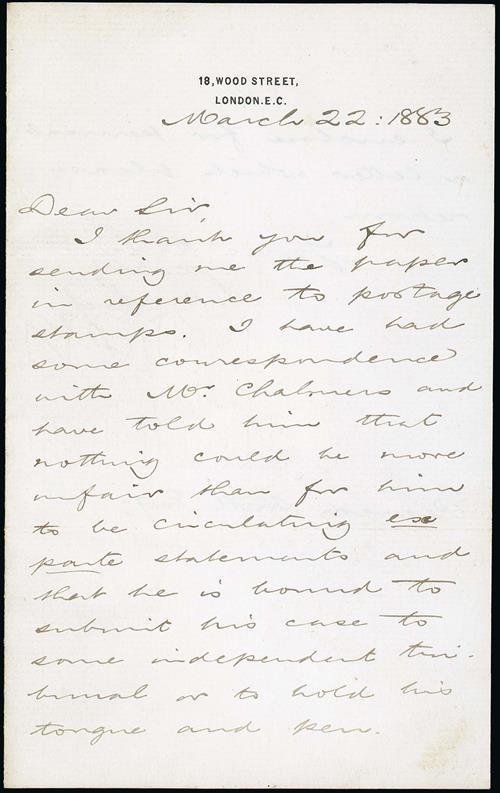 18, WOOD STREET,
LONDON. E.C.
March 22: 1883
Dear Sir,
I thank you for
sending me the paper
in reference to postage
stamps. I have had
some correspondence
with Mr. Chalmers and
have told him that
nothing could be more
unfair than for him
to be circulating ex
parte statements and
that he is bound to
submit his case to
some independent tri-
bunal or to hold his
tongue and pen.